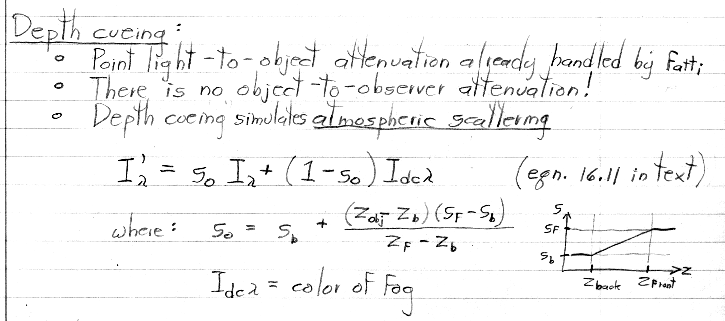 Depth cueing:
° Point light-to-object attenuation already handled by fatti
° There is no object-to-observer attenuation!
° Depth cueing simulates atmospheric scattering
I'λ = So Iλ + (1-So) Idcλ (eqn. 16.11 in text)
where: So = Sb + (Zobj - Zb)(SF - Sb) / ZF - Zb
Idcλ = color of fog
S
SF
Sb
Z
Zback Zfront